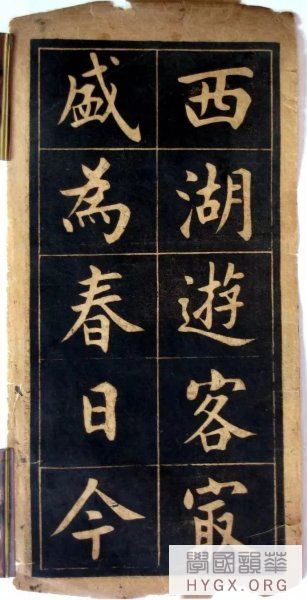 西湖遊客㝡
盛為春日今
學國韻華
HYGX.ORG